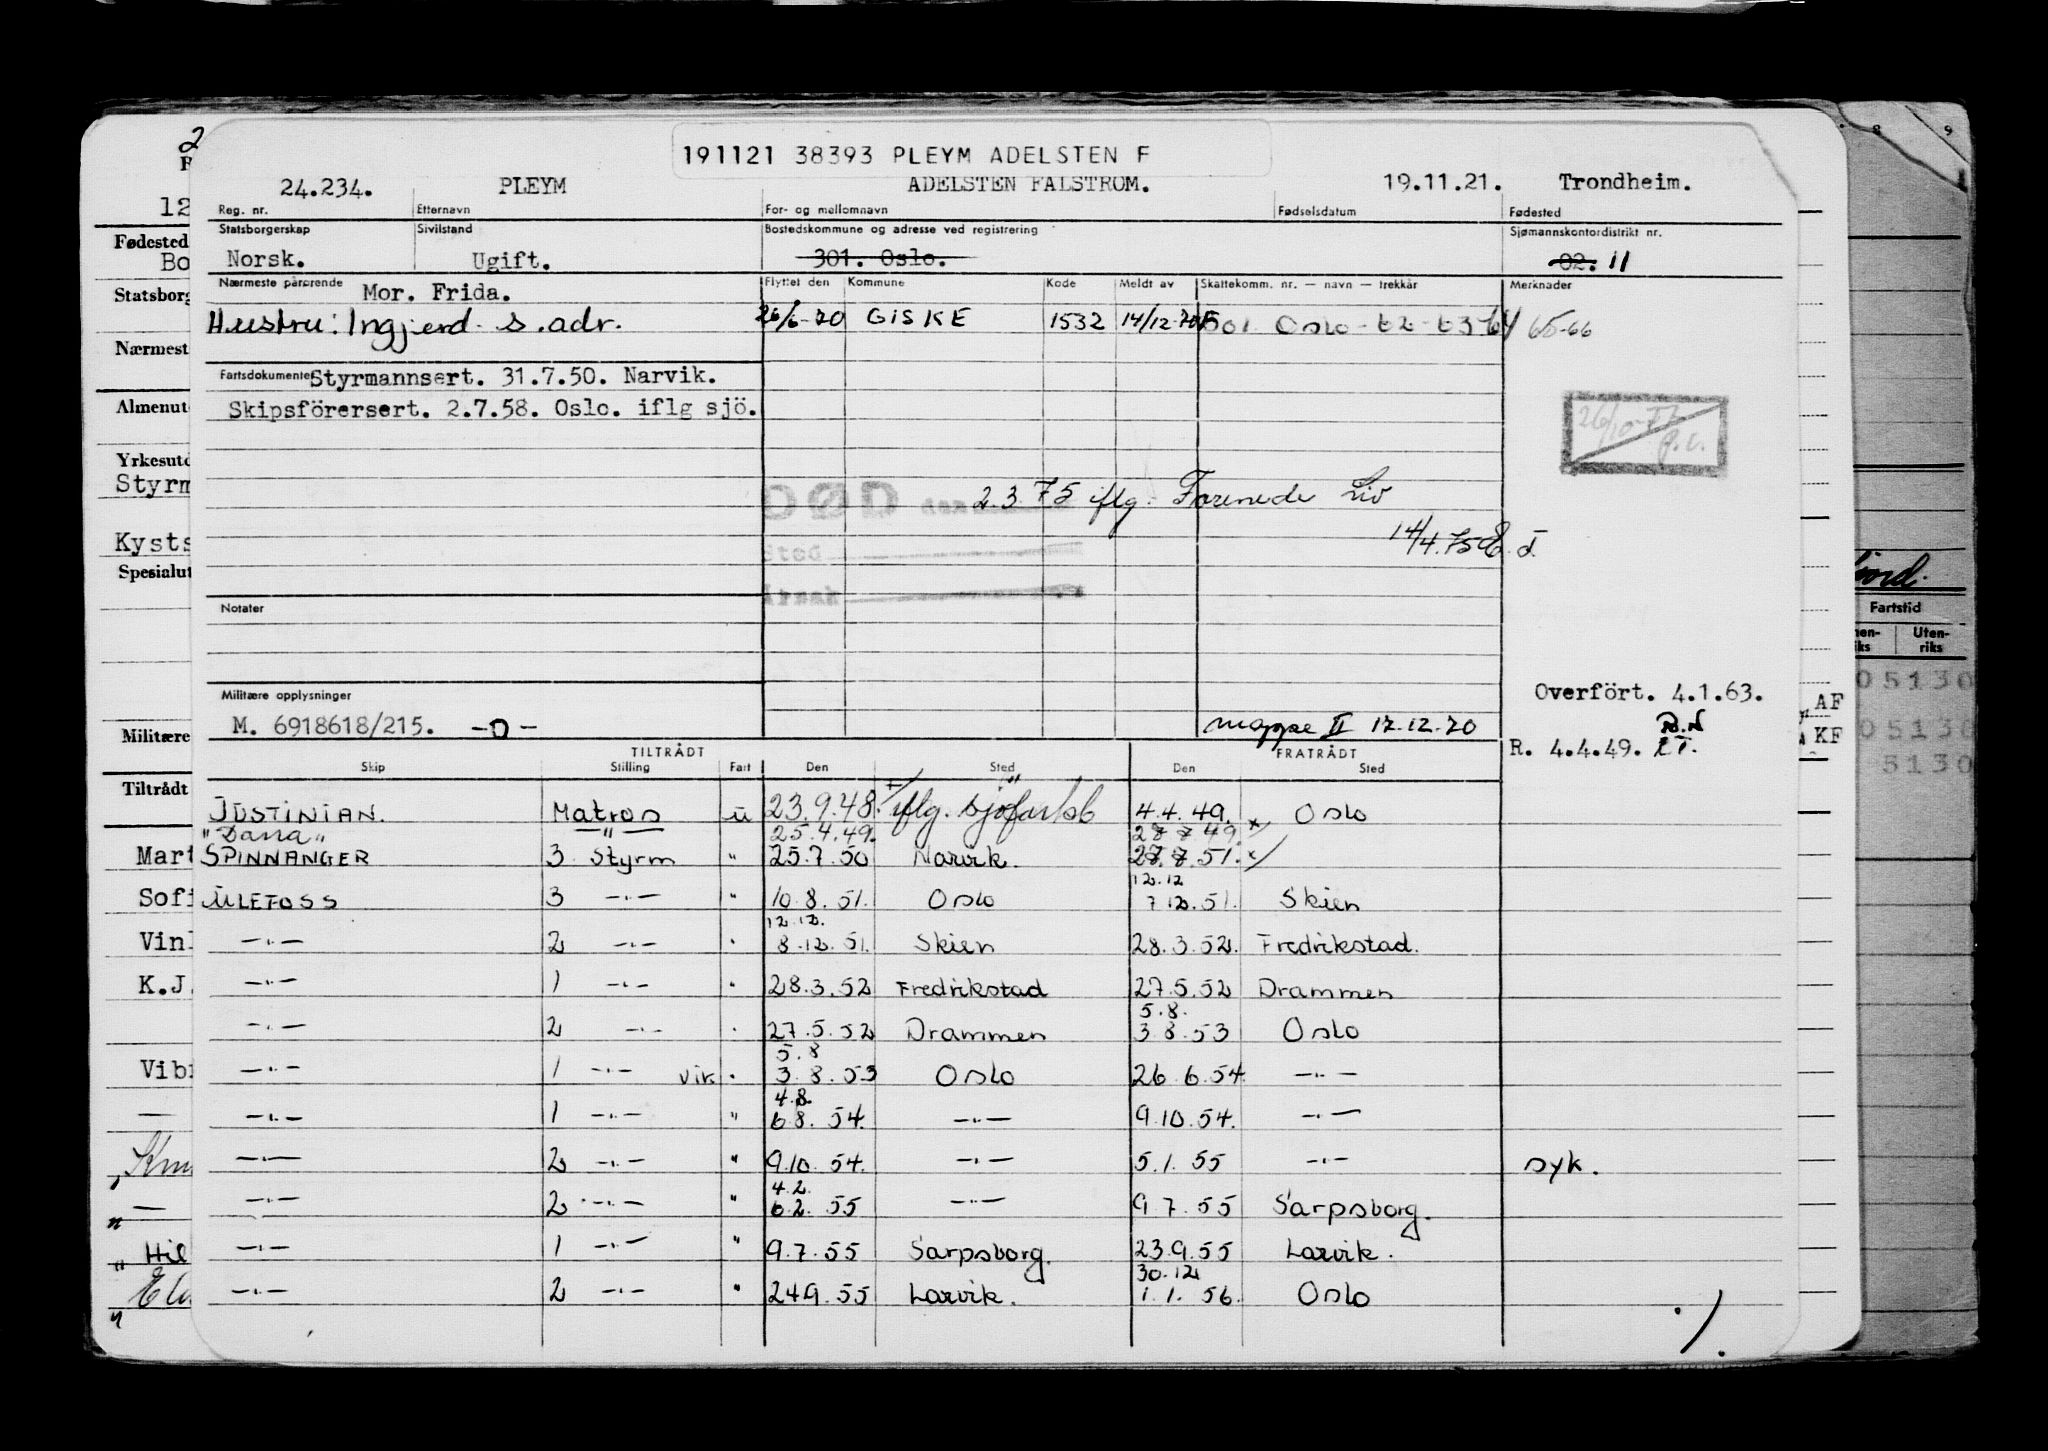 191121 38393 PLEYM ADELSTEN F
24.234. PLEYM ADELSTEN FALSTRÖM. 19.11.21. Trondheim.
Reg. nr. Etternavn For- og mellomnavn Fødselsdatum Fødested
Statsborgerskap Sivilstand Bostedskommune og adresse ved registrering Sjømannskontordistrikt nr.
Norsk. Ugift. 301. Oslo. 02. 11
Nærmeste pårørende Mor. Frida. Flyttet den Kommune Kode Meldt av Skattekomm. nr. — navn — trekkår Merknader
Hustru: Ingjerd s. adr. 26/6-70 GISKE 1532 14/12-70 Oslo - 62 - 63 64 65-66
Fartsdokumenter Styrmannsert. 31.7.50. Narvik.
Skipsförersert. 2.7.58. Oslo. iflg sjö.
DØD den 2.3.75 iflg. Forenede Liv
14/4.75
Sted
Årsak
Notater
Overfört. 4.1.63.
Militære opplysninger
M. 6918618/215. -o- mappe II 17.12.70
R. 4.4.49.
TILTRÅDT FRATRÅDT
Skip Stilling Fart Den Sted Den Sted
JUSTINIAN. Matros u 23.9.48. iflg. sjøfartsb 4.4.49. Oslo
"Dana" " 25.4.49. 28 7 49. x/
SPINNANGER 3 Styrm " 25.7.50 Narvik. 28.7.51. x/
12.12
ULEFOSS 3 —"— " 10.8.51. Oslo 7 12.51. Skien
12.12.
—"— 2 —"— " 8.12.51. Skien 28.3.52. Fredrikstad.
—"— 1 —"— " 28.3.52 Fredrikstad 27.5.52 Drammen
5.8.
—"— 2 —"— " 27.5.52 Drammen 3 8.53 Oslo
5.8
—"— 1 —"— vik " 3.8.53 Oslo 26.6.54. —"—
4.8.
—"— 1 —"— " 6 8. 54. —"— 9.10.54. —"—
—"— 2 —"— " 9.10.54. —"— 5.1.55 —"— syk.
4.2.
—"— 2 —"— " 6.2.55 —"— 9 7.55 Sarpsborg.
—"— 1 —"— " 9.7.55 Sarpsborg. 23.9.55 Larvik.
30.12
—"— 2 —"— " 24 9.55 Larvik. 1.1.56. Oslo
./.
12
Fødested
Bo
Statsborg
Nærmest
Almenut
Yrkesutd
Styrm
Kysts
Spesialut
Militære
Tiltrådt
Mart
Sofi
Vinl
K.J.
Vibi
Hil
AF
KF
8 9
Fartstid
Uten-
riks
05130
05130
5130